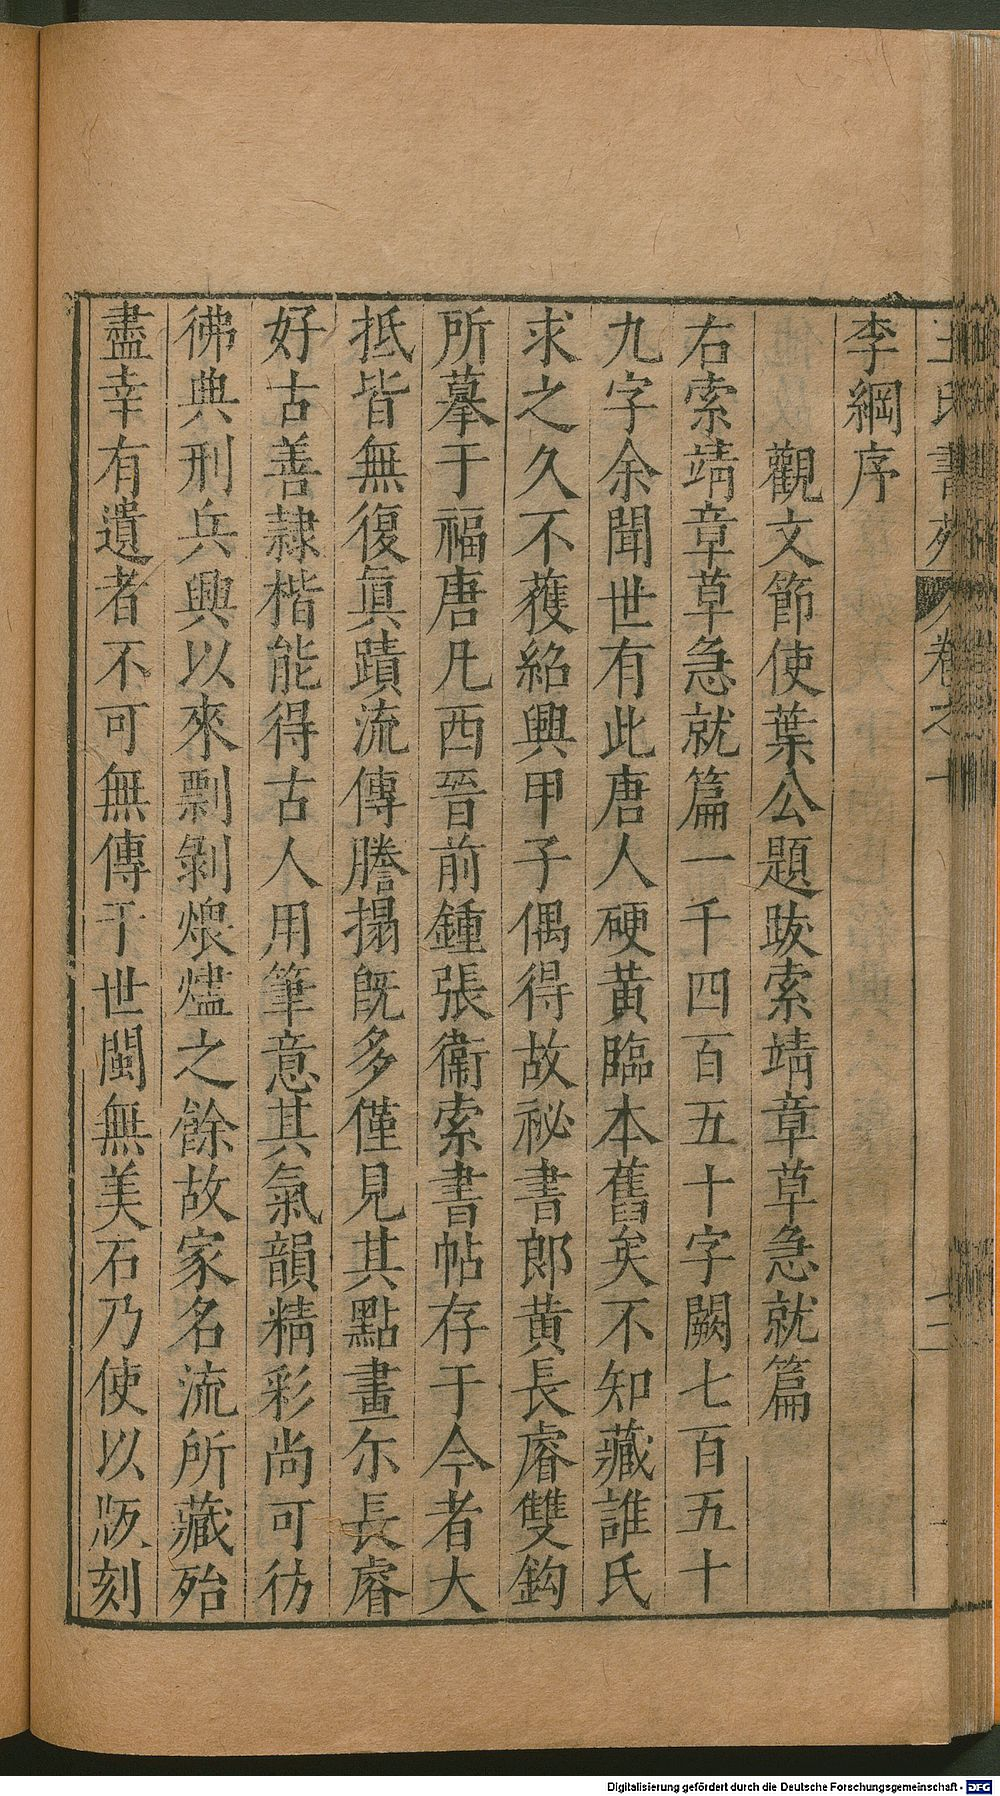 王氏書苑 卷之十 十二
李綱序
觀文節使葉公題跋索靖章草急就篇
右索靖章草急就篇一千四百五十字闕七百五十
九字余聞世有此唐人硬黃臨本舊矣不知藏誰氏
求之久不獲紹興甲子偶得故祕書郎黃長睿雙鈎
所摹于福唐凡西晉前鍾張衛索書帖存于今者大
抵皆無復眞蹟流傳謄搨旣多僅見其點畫尓長睿
好古善隷楷能得古人用筆意其氣韻精彩尚可彷
彿典刑兵興以來剽剝煨燼之餘故家名流所藏殆
盡幸有遺者不可無傳于世閩無美石乃使以版刻
Digitalisierung gefördert durch die Deutsche Forschungsgemeinschaft - DFG